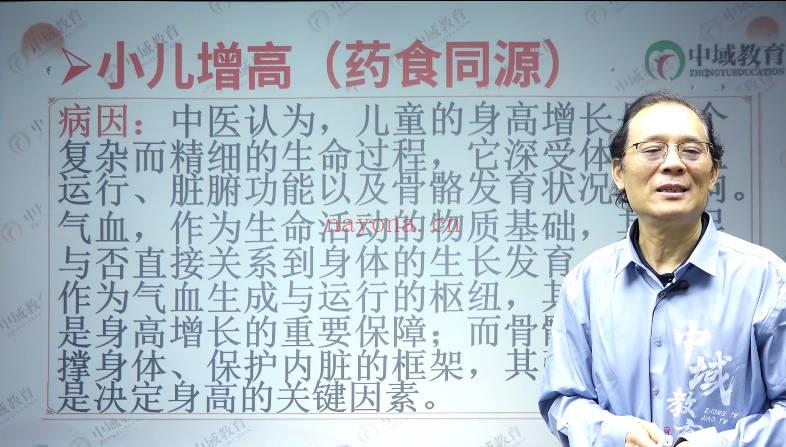 中域教育
ZHONGYUEDUCATION
➤小儿增高（药食同源）
病因：中医认为，儿童的身高增长
复杂而精细的生命过程，它深受体
运行、脏腑功能以及骨骼发育状况
气血，作为生命活动的物质基础，
与否直接关系到身体的生长发育
作为气血生成与运行的枢纽，其
是身高增长的重要保障；而骨
撑身体、保护内脏的框架，其
是决定身高的关键因素。
nayona.cn
中域教育
ZHONG YU
JIAO YU